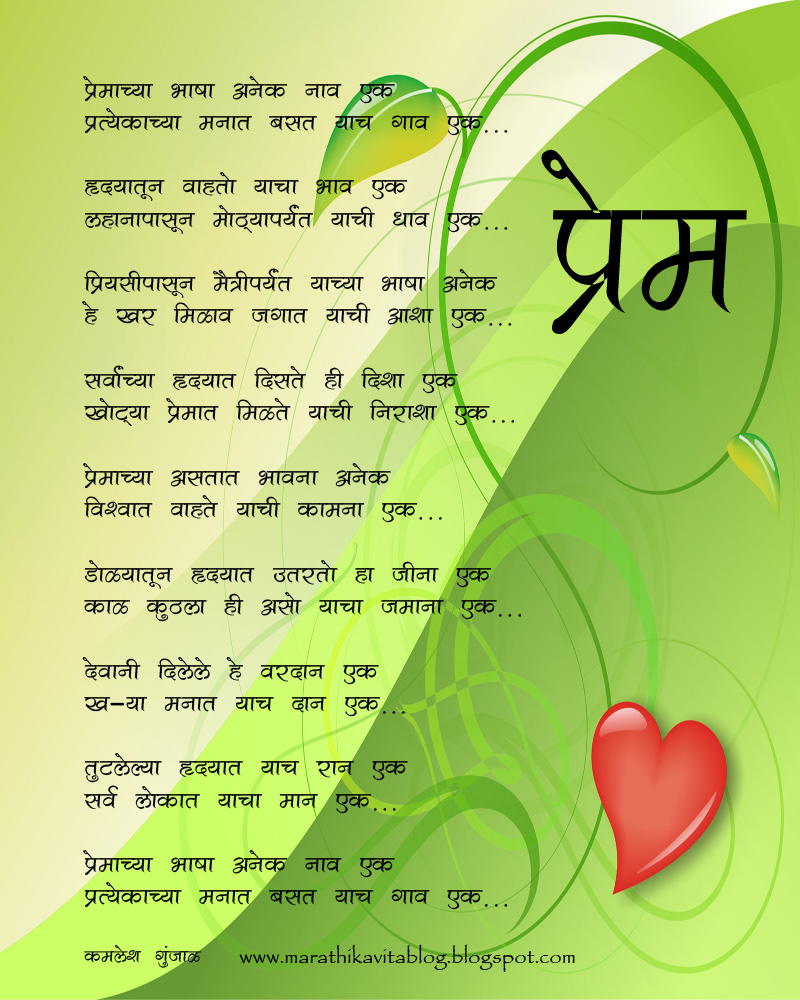 प्रेम
प्रेमाच्या भाषा अनेक नाव एक
प्रत्येकाच्या मनात बसत याच गाव एक...
हृदयातून वाहतो याचा भाव एक
लहानापासून मोठ्यापर्यंत याची धाव एक...
प्रियसीपासून मैत्रीपर्यंत याच्या भाषा अनेक
हे खर मिळाव जगात याची आशा एक...
सर्वांच्या हृदयात दिसते ही दिशा एक
खोट्या प्रेमात मिळते याची निराशा एक...
प्रेमाच्या असतात भावना अनेक
विश्वात वाहते याची कामना एक...
डोळयातून हृदयात उतरतो हा जीना एक
काळ कुठला ही असो याचा जमाना एक...
देवानी दिलेले हे वरदान एक
ख-या मनात याच दान एक...
तुटलेल्या हृदयात याच रान एक
सर्व लोकात याचा मान एक...
प्रेमाच्या भाषा अनेक नाव एक
प्रत्येकाच्या मनात बसत याच गाव एक...
कमलेश गुंजाळ www.marathikavitablog.blogspot.com